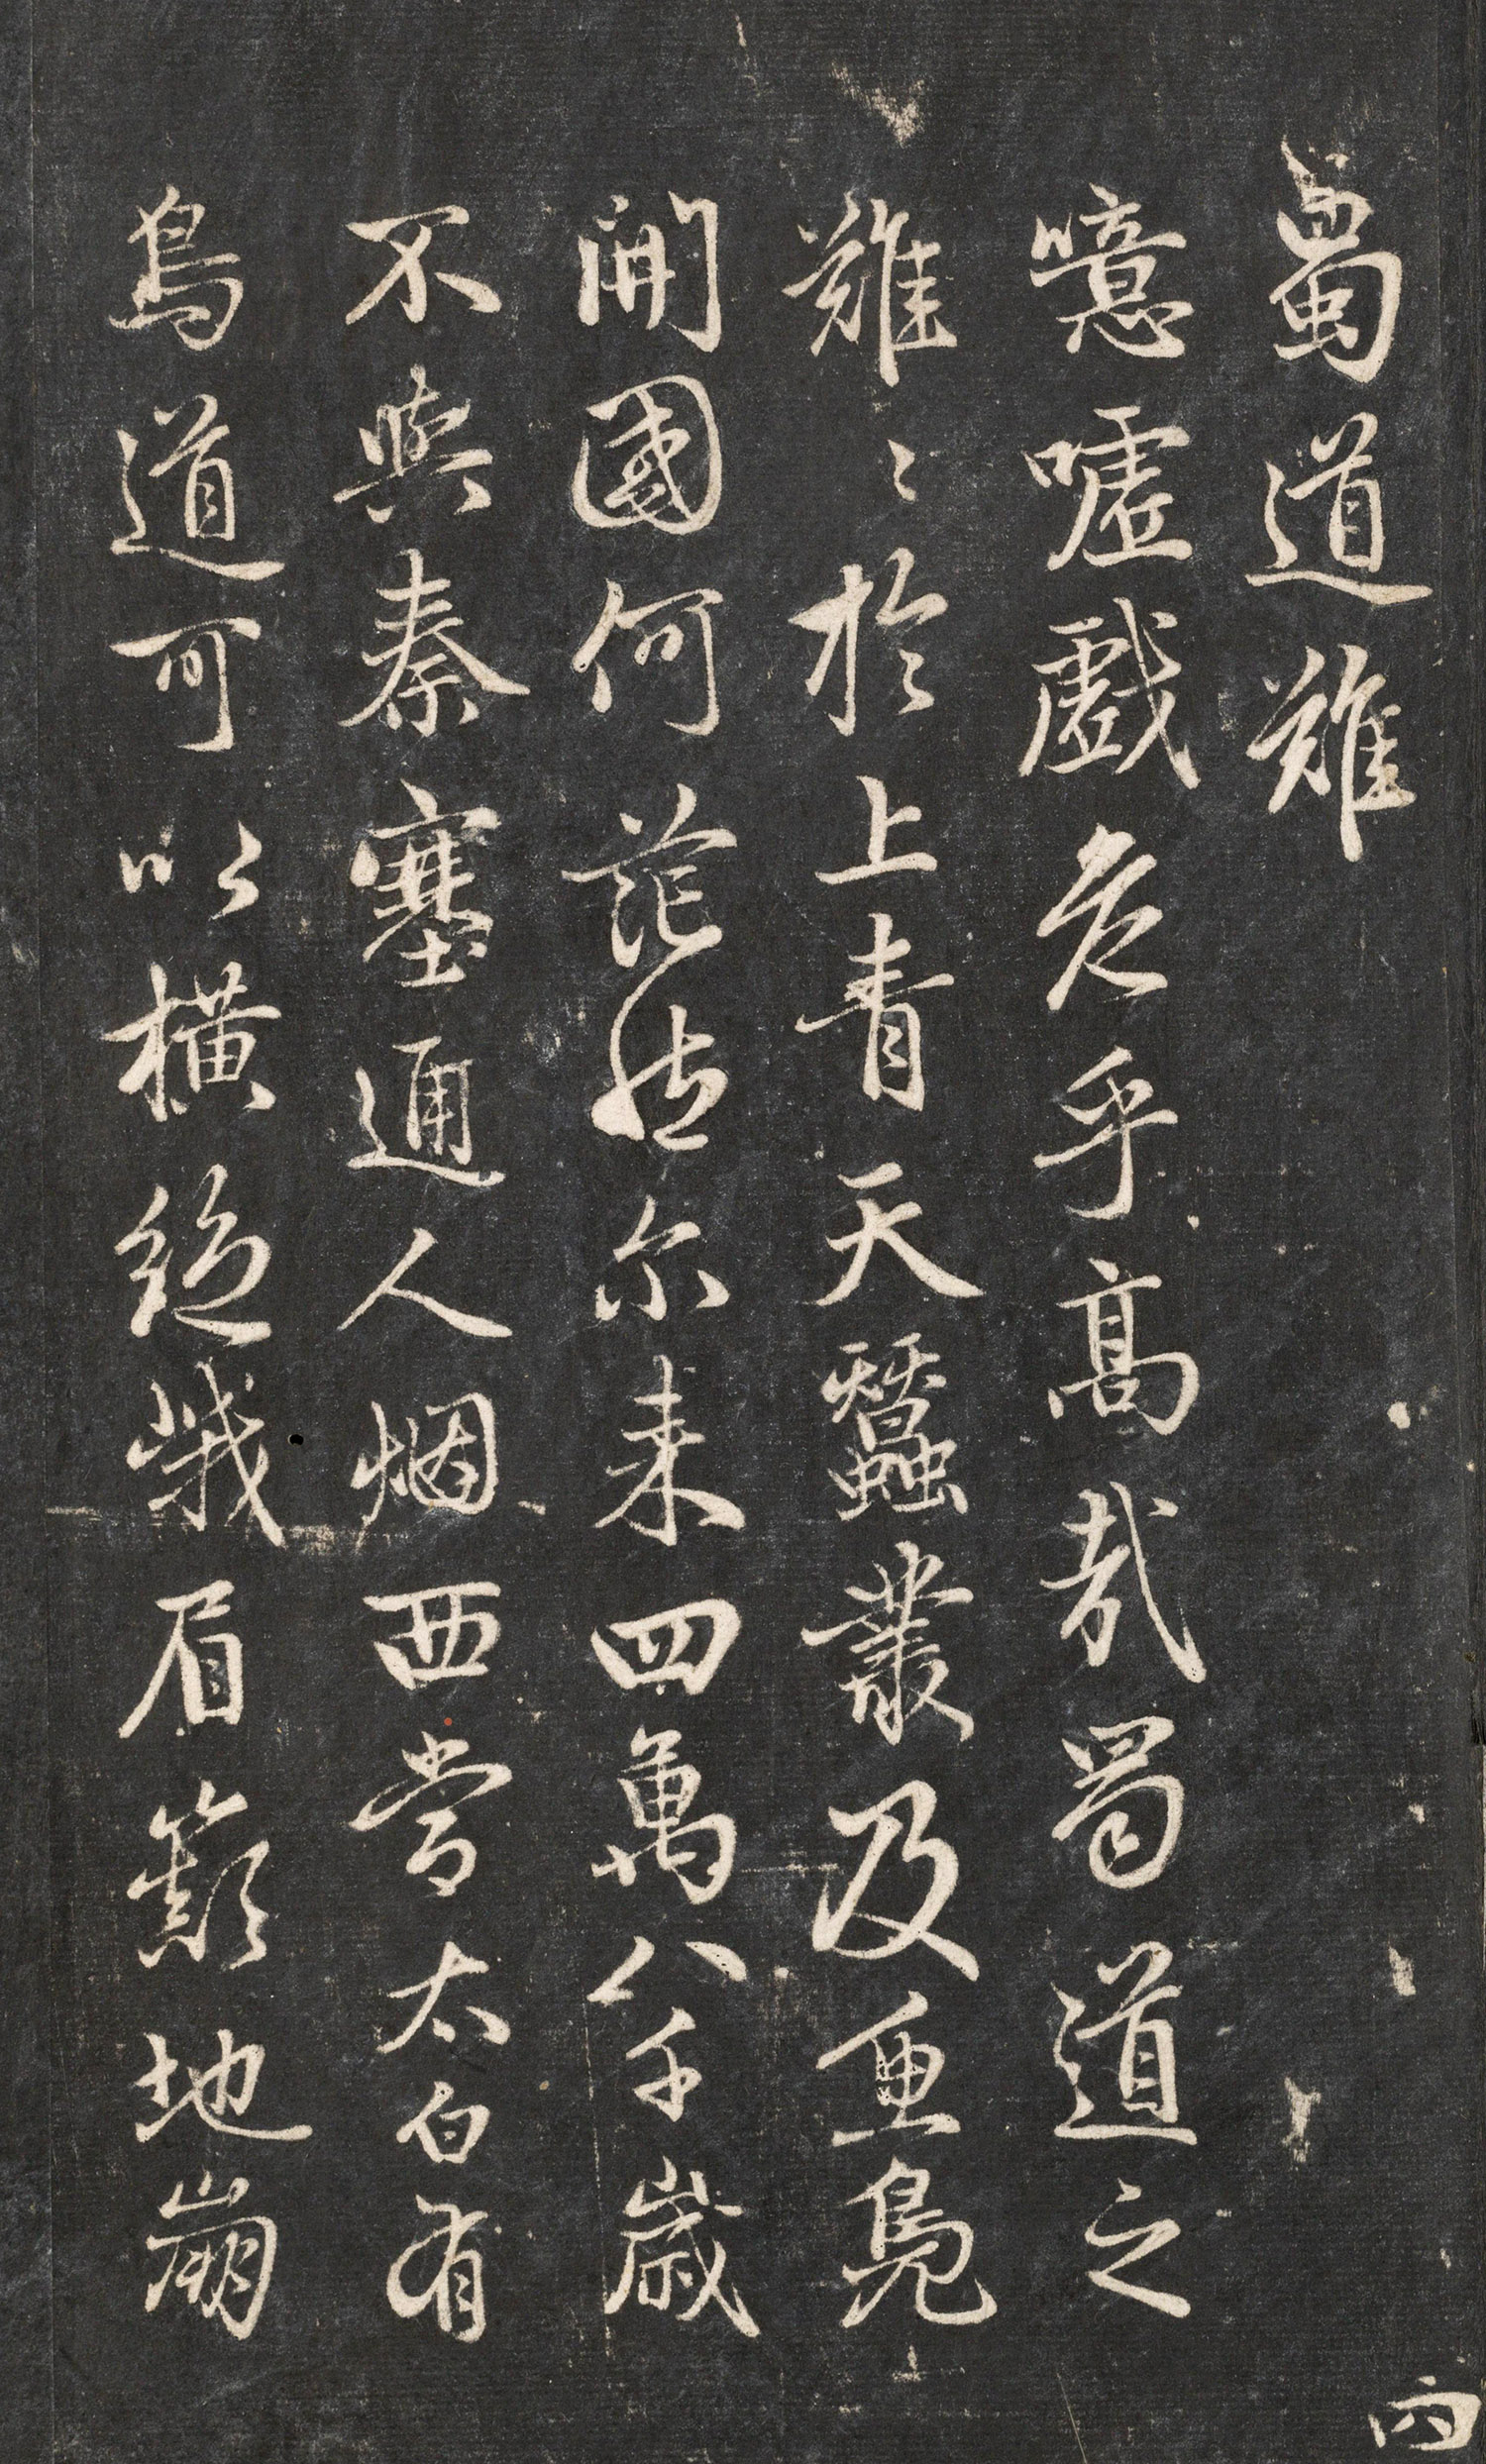 蜀道難
噫嘘戲危乎高哉蜀道之
難〻於上青天蠶叢及魚鳧
開國何茫然尔来四萬八千歲
不與秦塞通人烟西當太白有
鳥道可以橫絕峩眉巔地崩